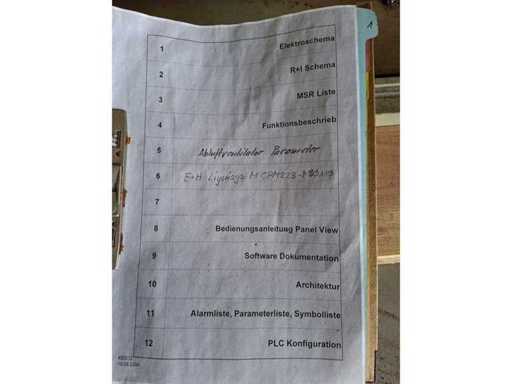 1 Elektroschema
1
2 R+I Schema
3 MSR Liste
4 Funktionsbeschrieb
5 Abluftventilator Parameter
6 E+H Liquisys M
7
8 Bedienungsanleitung Panel View
9 Software Dokumentation
10 Architektur
11 Alarmliste, Parameterliste, Symbolliste
12 PLC Konfiguration